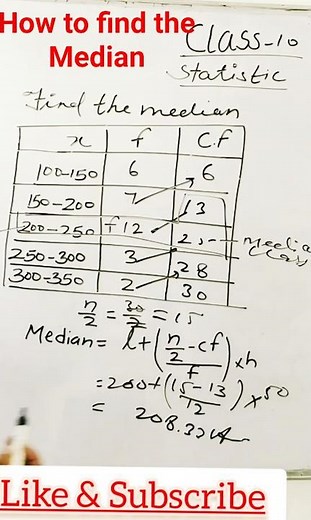 How to find the
Median
Class-10
Statistic
Find the median
x f C.f
100-150 6 6
150-200 7 13
200-250 f 12 25 Median class
250-300 3 28
300-350 2 30
n/2 = 30/2 = 15
Median = l+(n/2-cf/f)×h
=200+(15-13/12)×50
= 208.33
Like & Subscribe